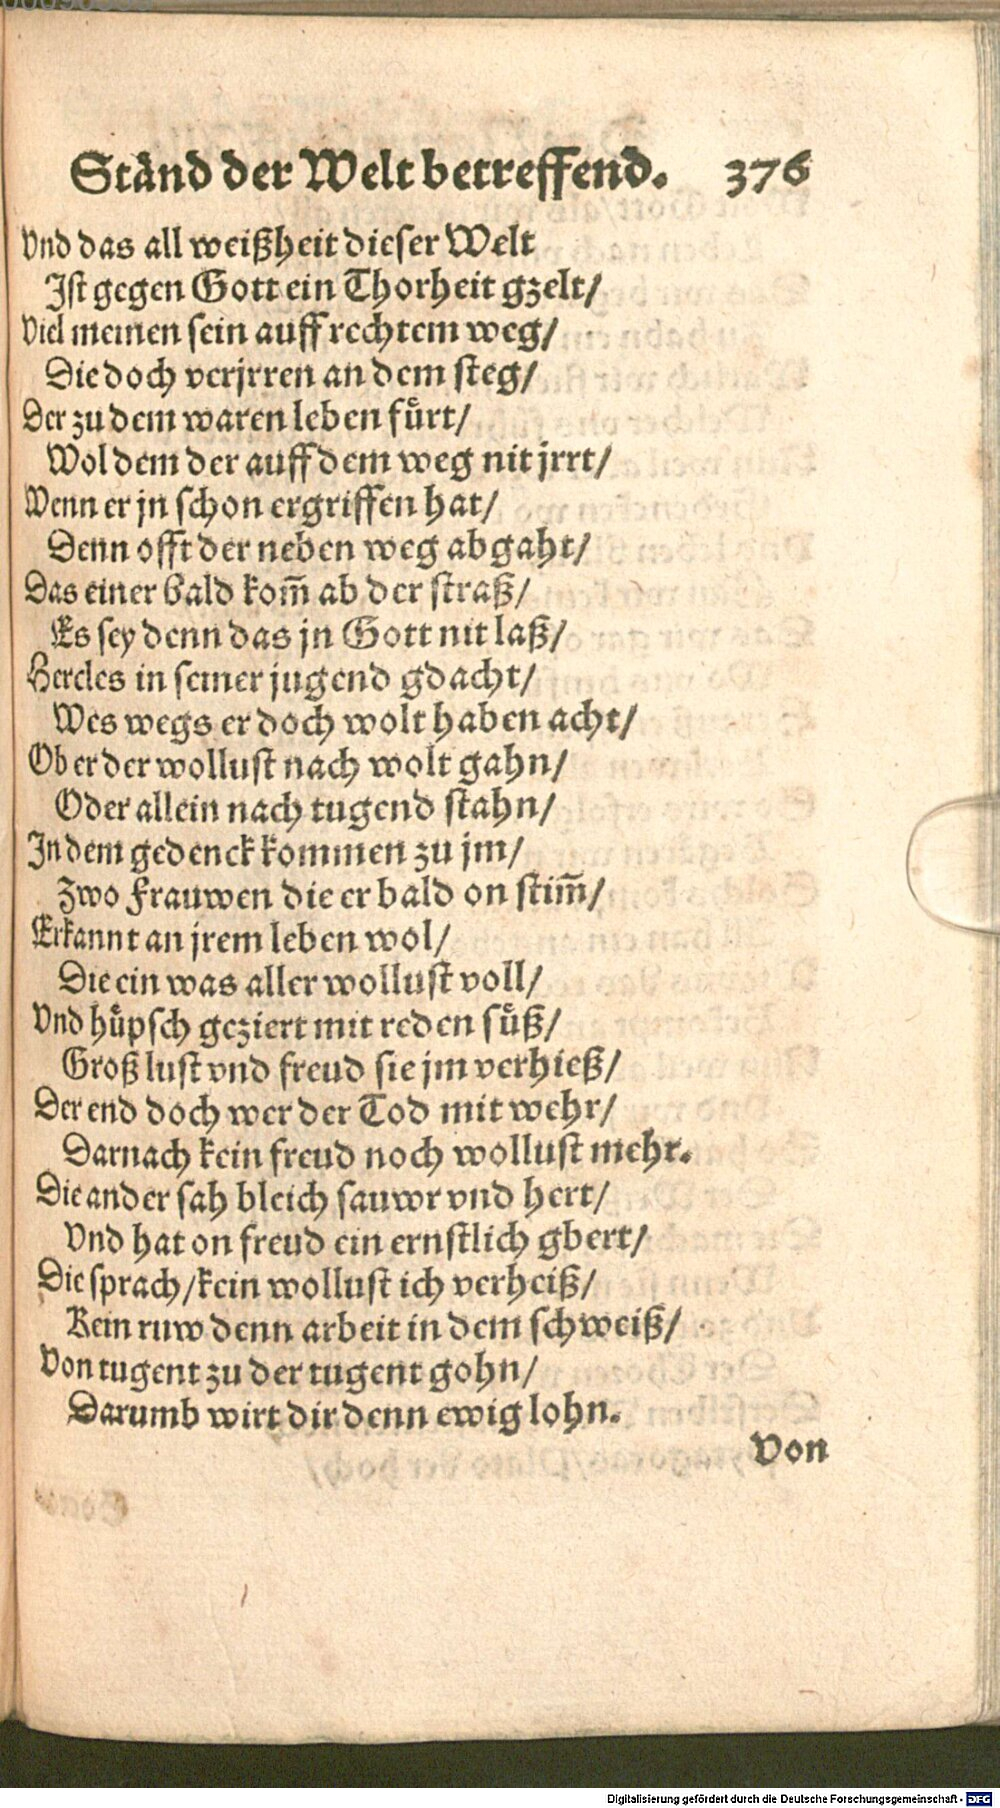 Ständ der Welt betreffend. 376
Vnd das all weißheit dieser Welt
Ist gegen Gott ein Thorheit gzelt/
Viel meinen sein auff rechtem weg/
Die doch verjrren an dem steg/
Der zu dem waren leben fůrt/
Wol dem der auff dem weg nit jrrt/
Wenn er jn schon ergriffen hat/
Denn offt der neben weg abgaht/
Das einer bald kom̃ ab der straß/
Es sey denn das jn Gott nit laß/
Hercles in seiner jugend gdacht/
Wes wegs er doch wolt haben acht/
Ob er der wollust nach wolt gahn/
Oder allein nach tugend stahn/
In dem gedenck kommen zu jm/
Zwo Frauwen die er bald on stim̃/
Erkannt an jrem leben wol/
Die ein was aller wollust voll/
Vnd hůpsch geziert mit reden sůß/
Groß lust vnd freud sie jm verhieß/
Der end doch wer der Tod mit wehr/
Darnach kein freud noch wollust mehr.
Die ander sah bleich sauwr vnd hert/
Vnd hat on freud ein ernstlich gbert/
Die sprach/kein wollust ich verheiß/
Kein ruw denn arbeit in dem schweiß/
Von tugent zu der tugent gohn/
Darumb wirt dir denn ewig lohn.
Von
Digitalisierung gefördert durch die Deutsche Forschungsgemeinschaft - DFG